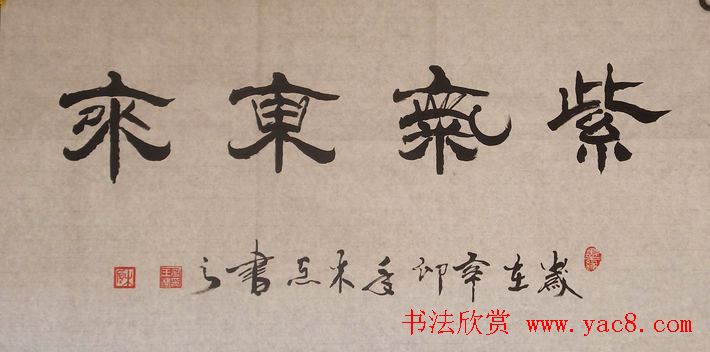 紫氣東來
歲在辛卯年米書之
书法欣赏 www.yac8.com